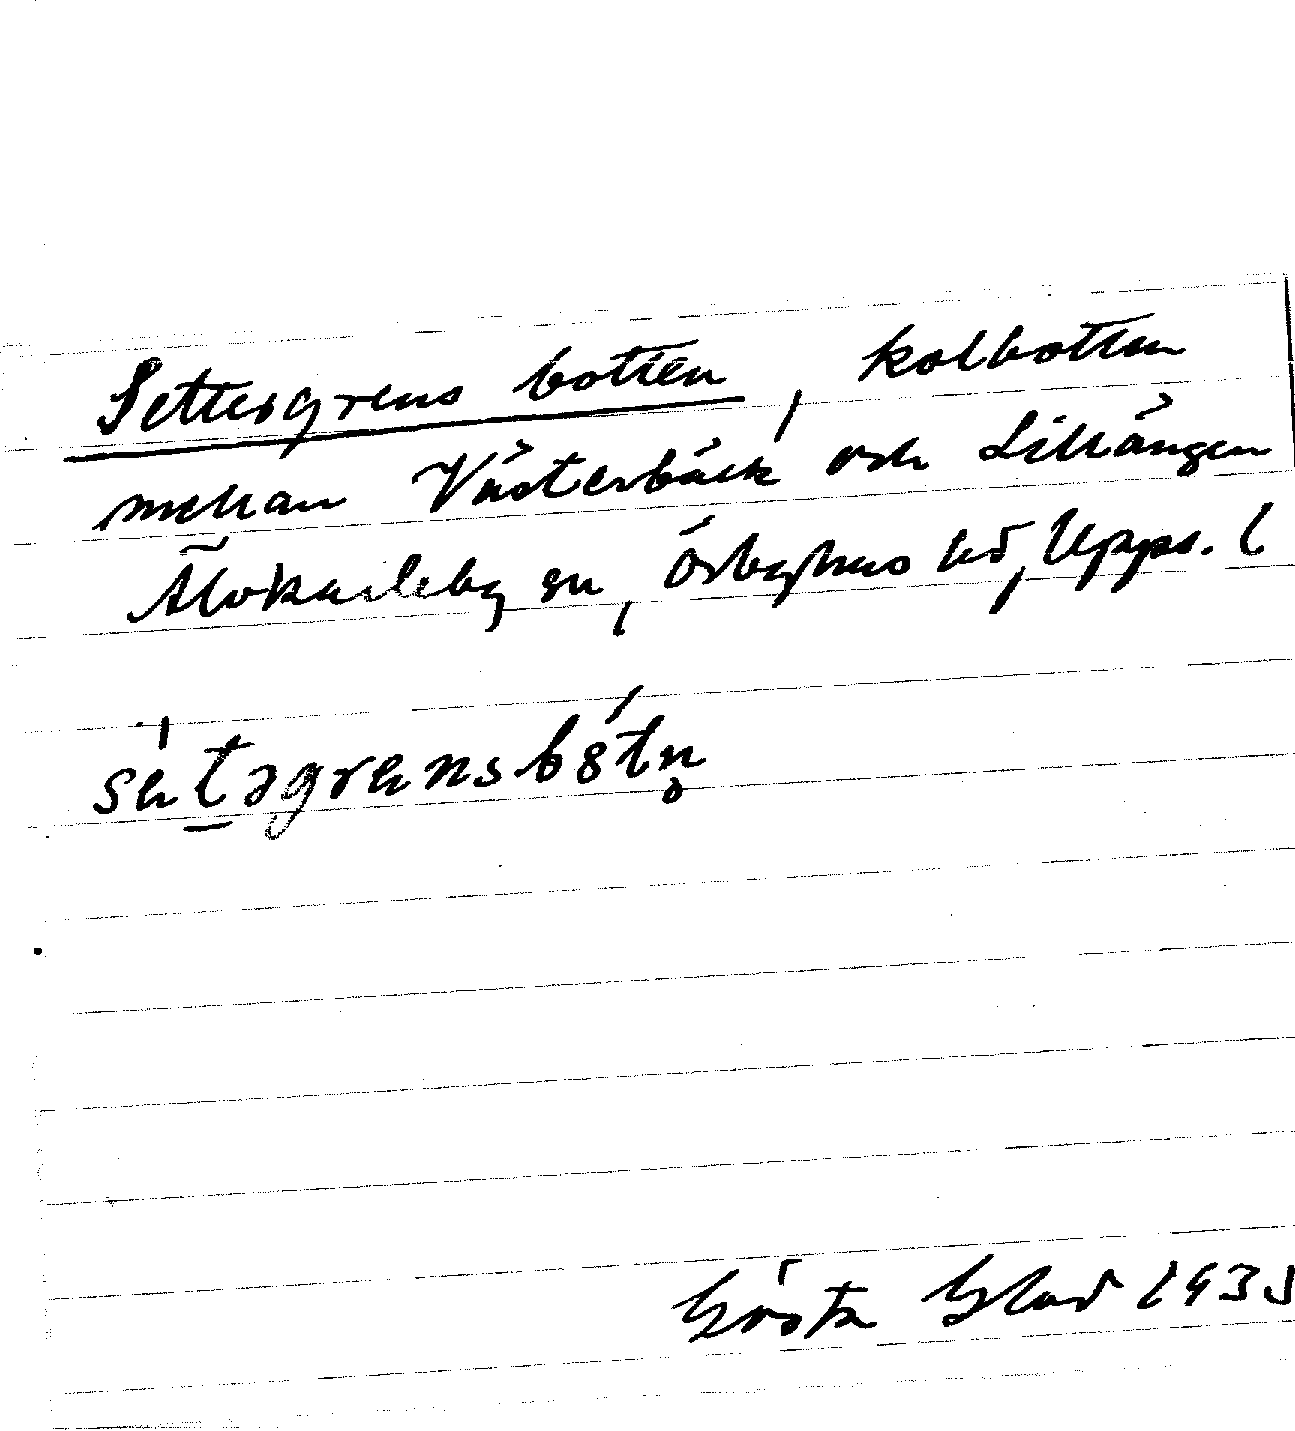 Settergrens botten, kolbotten
mellan Västerbäck och Lillängen
Älvkarleby sn, Örbyhus hd, Upps. l
sätəgrensbotn̥
Gösta Blad 1933